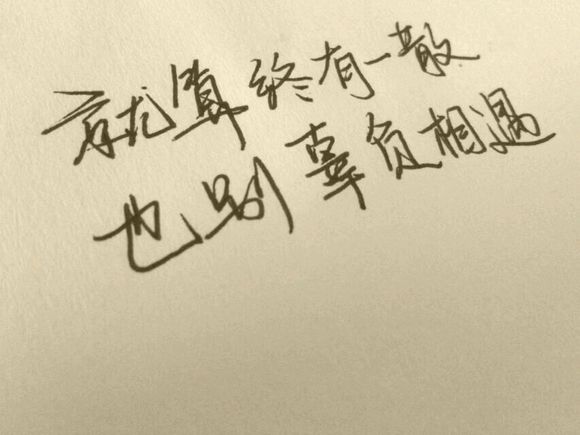 就算终有一散
也别辜负相遇